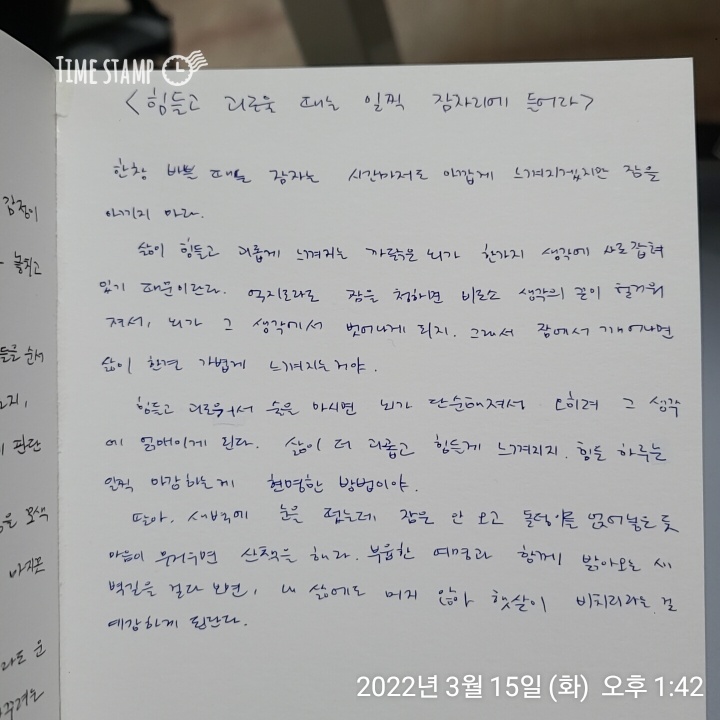 TIME STAMP
<힘들고 괴로울 때는 일찍 잠자리에 들어라>
한창 바쁠 때는 잠자는 시간마저도 아깝게 느껴지겠지만 잠을
아끼지 마라.
삶이 힘들고 괴롭게 느껴지는 까닭은 뇌가 한가지 생각에 사로잡혀
있기 때문이란다. 억지로라도 잠을 청하면 비로소 생각의 끈이 헐거워
져서, 뇌가 그 생각에서 벗어나게 되지. 그래서 잠에서 깨어나면
삶이 한결 가볍게 느껴지는거야.
힘들고 괴로워서 술을 마시면 뇌가 단순해져서 오히려 그 생각
에 얽매이게 된다. 삶이 더 괴롭고 힘들게 느껴지지. 힘든 하루는
일찍 마감하는게 현명한 방법이야.
딸아, 새벽에 눈을 떴는데 잠은 안 오고 돌덩이를 얹어놓은 듯
마음이 무거우면 산책을 해라. 부윰한 여명과 함께 밝아오는 새
벽길을 걷다 보면, 내 삶에도 머지 않아 햇살이 비치리라는 걸
예감하게 된단다.
감정이
놓치고
들을 순서
판단
모색
라도 운
바꾸려는
2022년 3월 15일 (화) 오후 1:42